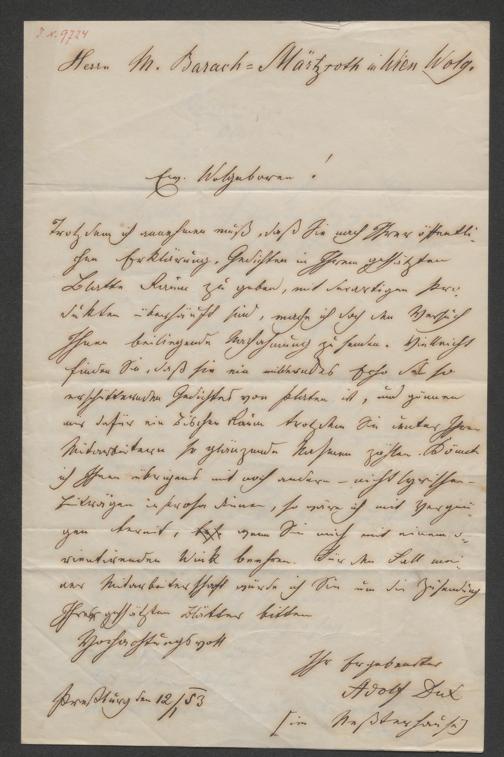 I. N. 9724
Herrn M. Barach-Märtzroth in Wien Wolg.
Ew. Wolgeboren!
Trotzdem ich annehmen muß, daß Sie nach Ihrer öffentli-
chen Erklärung, Gedichten in Ihrem geschätzten
Blatte Raum zu geben, mit derartigen Pro-
dukten überhäuft sind, mache ich doch den Versuch
Ihnen beiliegende Nachahmung zu senden. Vielleicht
finden Sie, daß sie ein milderndes Echo des so
erschütternden Gedichtes von Platen ist, und gönnen
mir dafür ein Bischen Raum trotzdem Sie unter Ihren
Mitarbeitern so glänzende Nahmen zählen. Könnte
ich Ihnen übrigens mit noch andern – nicht lyrischen –
Beiträgen in Prosa dienen, so wäre ich mit Vergnü-
gen bereit, wenn Sie mich mit einem o-
rientirenden Wink beehren. Für den Fall mei-
ner Mitarbeiterschaft würde ich Sie um die Zusendung
Ihrer geschätzten Blätter bitten
Hochachtungsvoll
Ihr Ergebenster
Adolf Dux
Preßburg den 12/1 53
[im